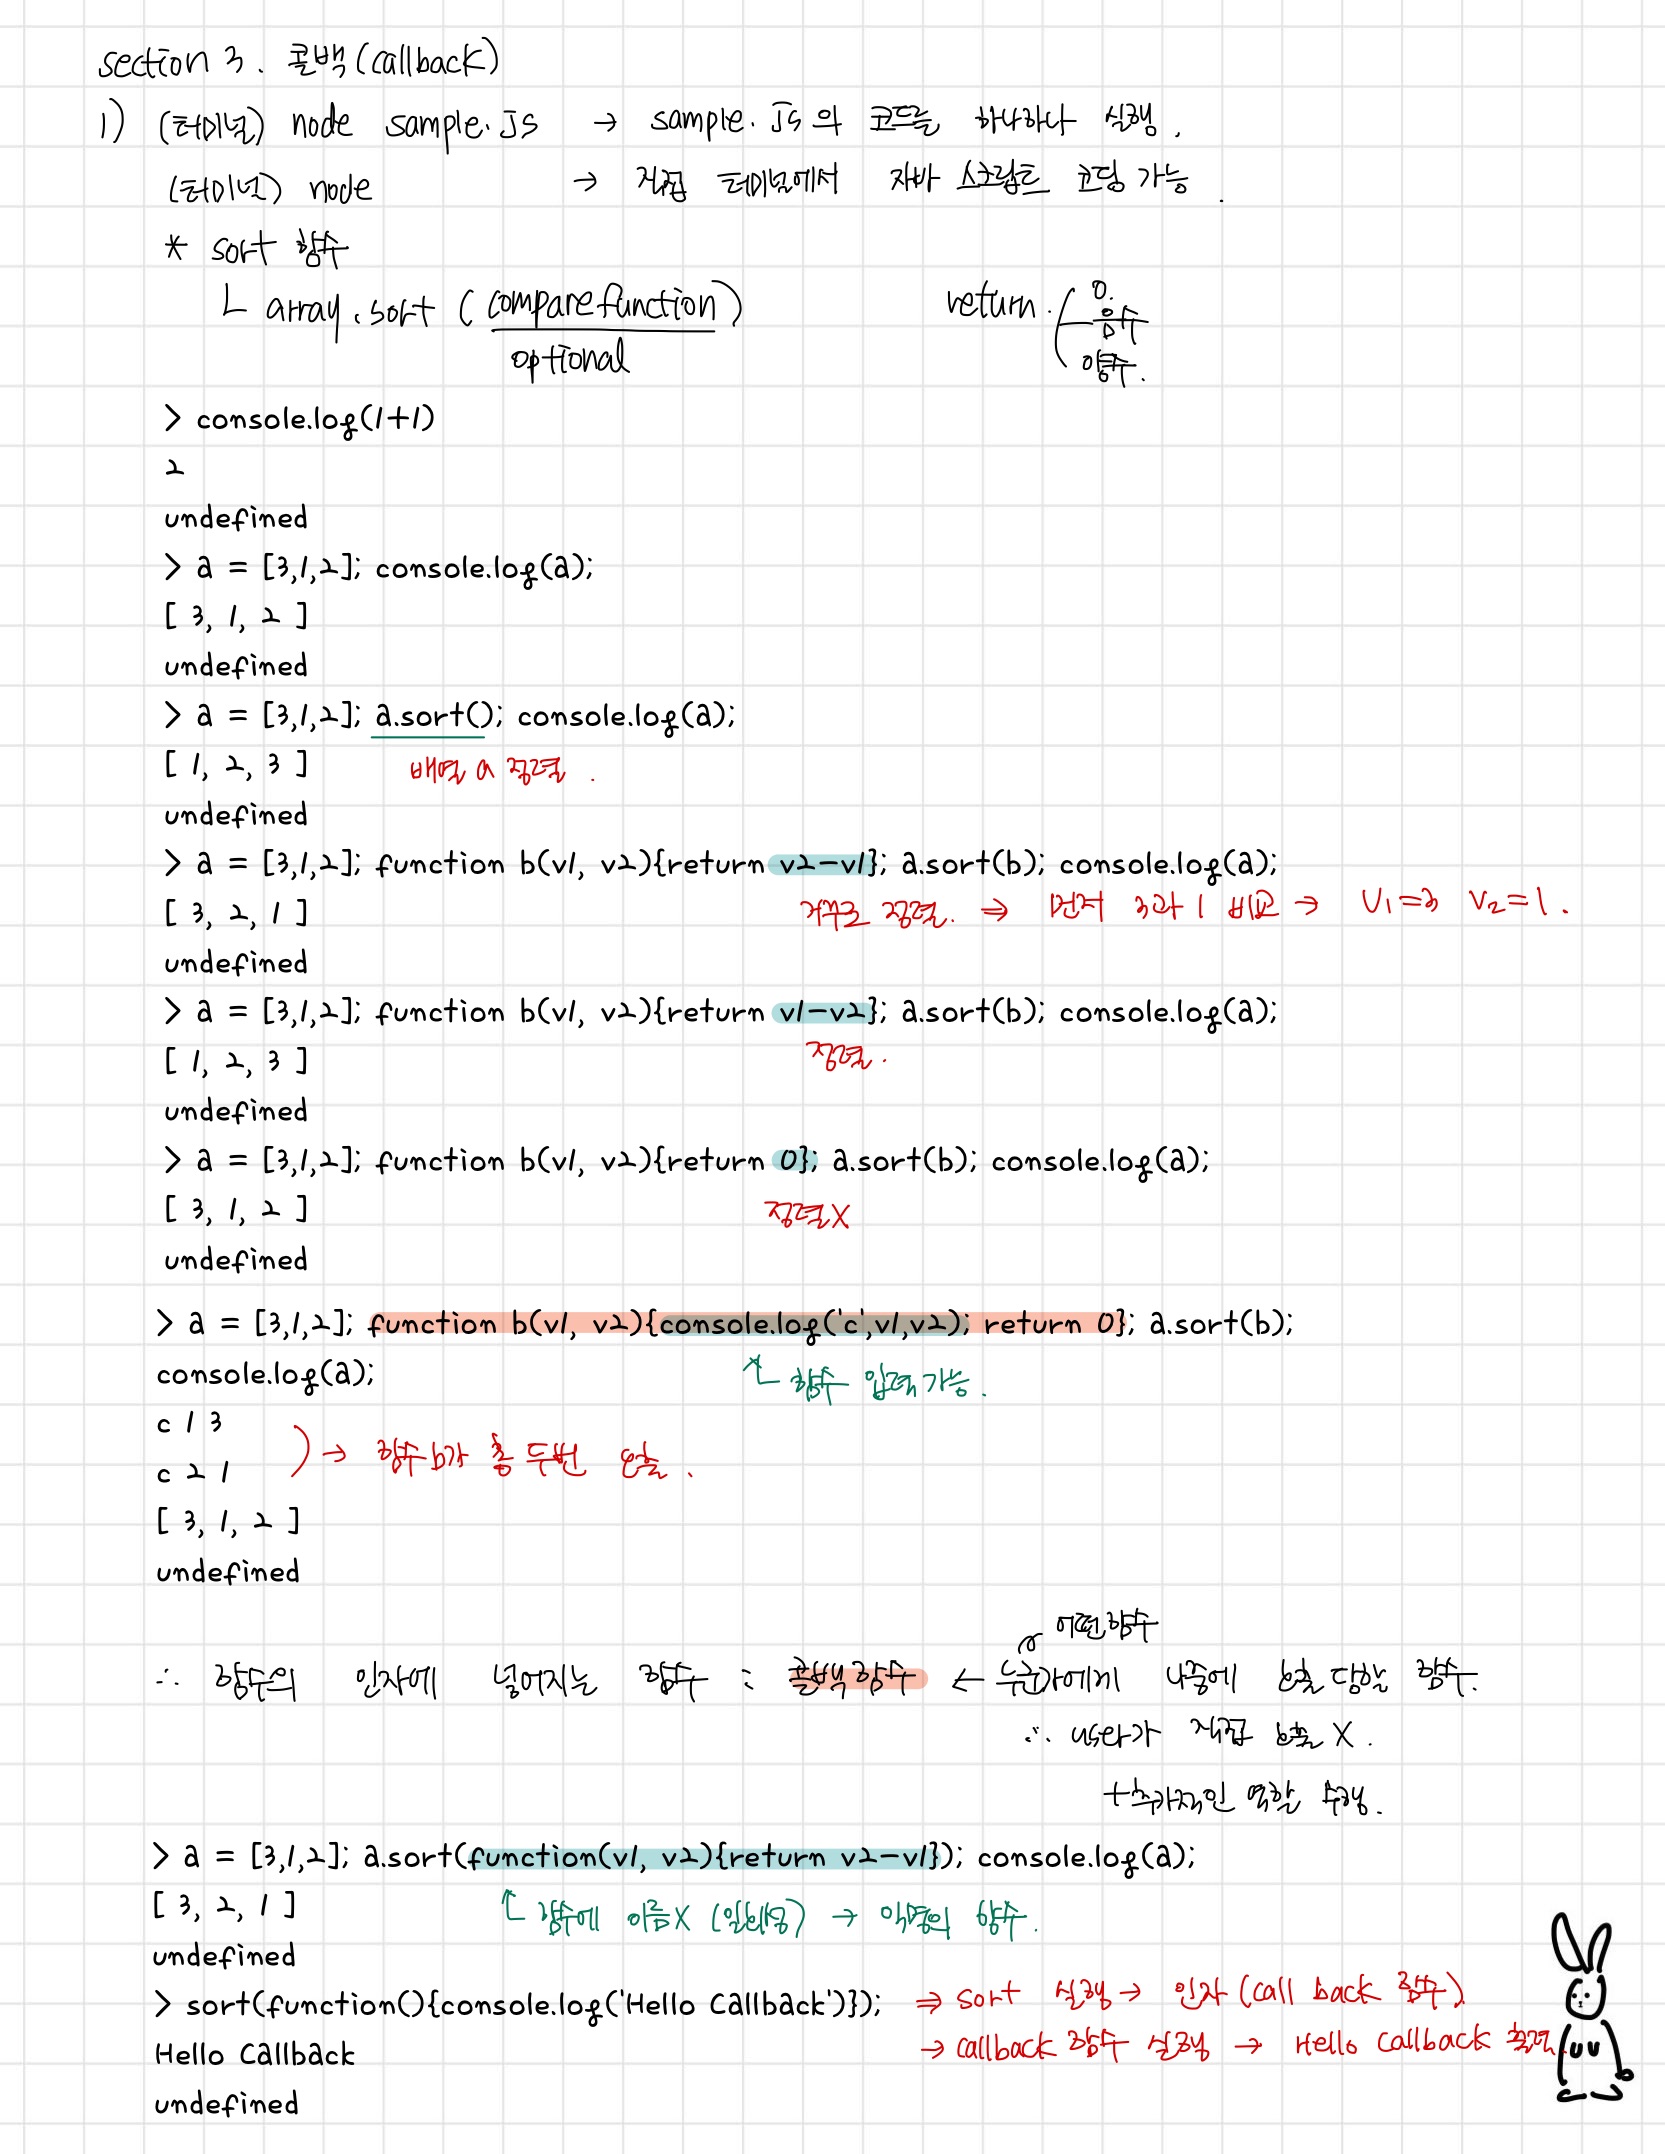 section 3. 콜백 (callback)
1) (터미널) node sample.js → sample.js의 코드를 하나하나 실행.
(터미널) node → 직접 터미널에서 자바 스크립트 코딩 가능.
* sort 함수
└ array.sort (compare function) return. 0.
optional 음수
양수.
> console.log(1+1)
2
undefined
> a = [3,1,2]; console.log(a);
[ 3, 1, 2 ]
undefined
> a = [3,1,2]; a.sort(); console.log(a);
[ 1, 2, 3 ] 배열 a 정렬.
undefined
> a = [3,1,2]; function b(v1, v2){return v2-v1}; a.sort(b); console.log(a);
[ 3, 2, 1 ] 거꾸로 정렬. ⇒ 먼저 3과 1 비교 → V1=3 V2=1.
undefined
> a = [3,1,2]; function b(v1, v2){return v1-v2}; a.sort(b); console.log(a);
[ 1, 2, 3 ] 정렬.
undefined
> a = [3,1,2]; function b(v1, v2){return 0}; a.sort(b); console.log(a);
[ 3, 1, 2 ] 정렬X
undefined
> a = [3,1,2]; function b(v1, v2){console.log('c',v1,v2); return 0}; a.sort(b);
console.log(a); 함수 입력 가능.
c 1 3
c 2 1 ) → 함수 b가 총 두번 호출.
[ 3, 1, 2 ]
undefined
어떤 함수
∴ 함수의 인자에 넣어지는 함수 : 콜백 함수 ← 누군가에게 나중에 호출 당할 함수.
∴ user가 직접 호출 X.
+추가적인 역할 수행.
> a = [3,1,2]; a.sort(function(v1, v2){return v2-v1}); console.log(a);
[ 3, 2, 1 ] 함수에 이름X (일회용) → 익명의 함수.
undefined
> sort(function(){console.log('Hello Callback')}); ⇒ sort 실행 → 인자 (call back 함수)
Hello Callback → callback 함수 실행 → Hello Callback 출력.
undefined